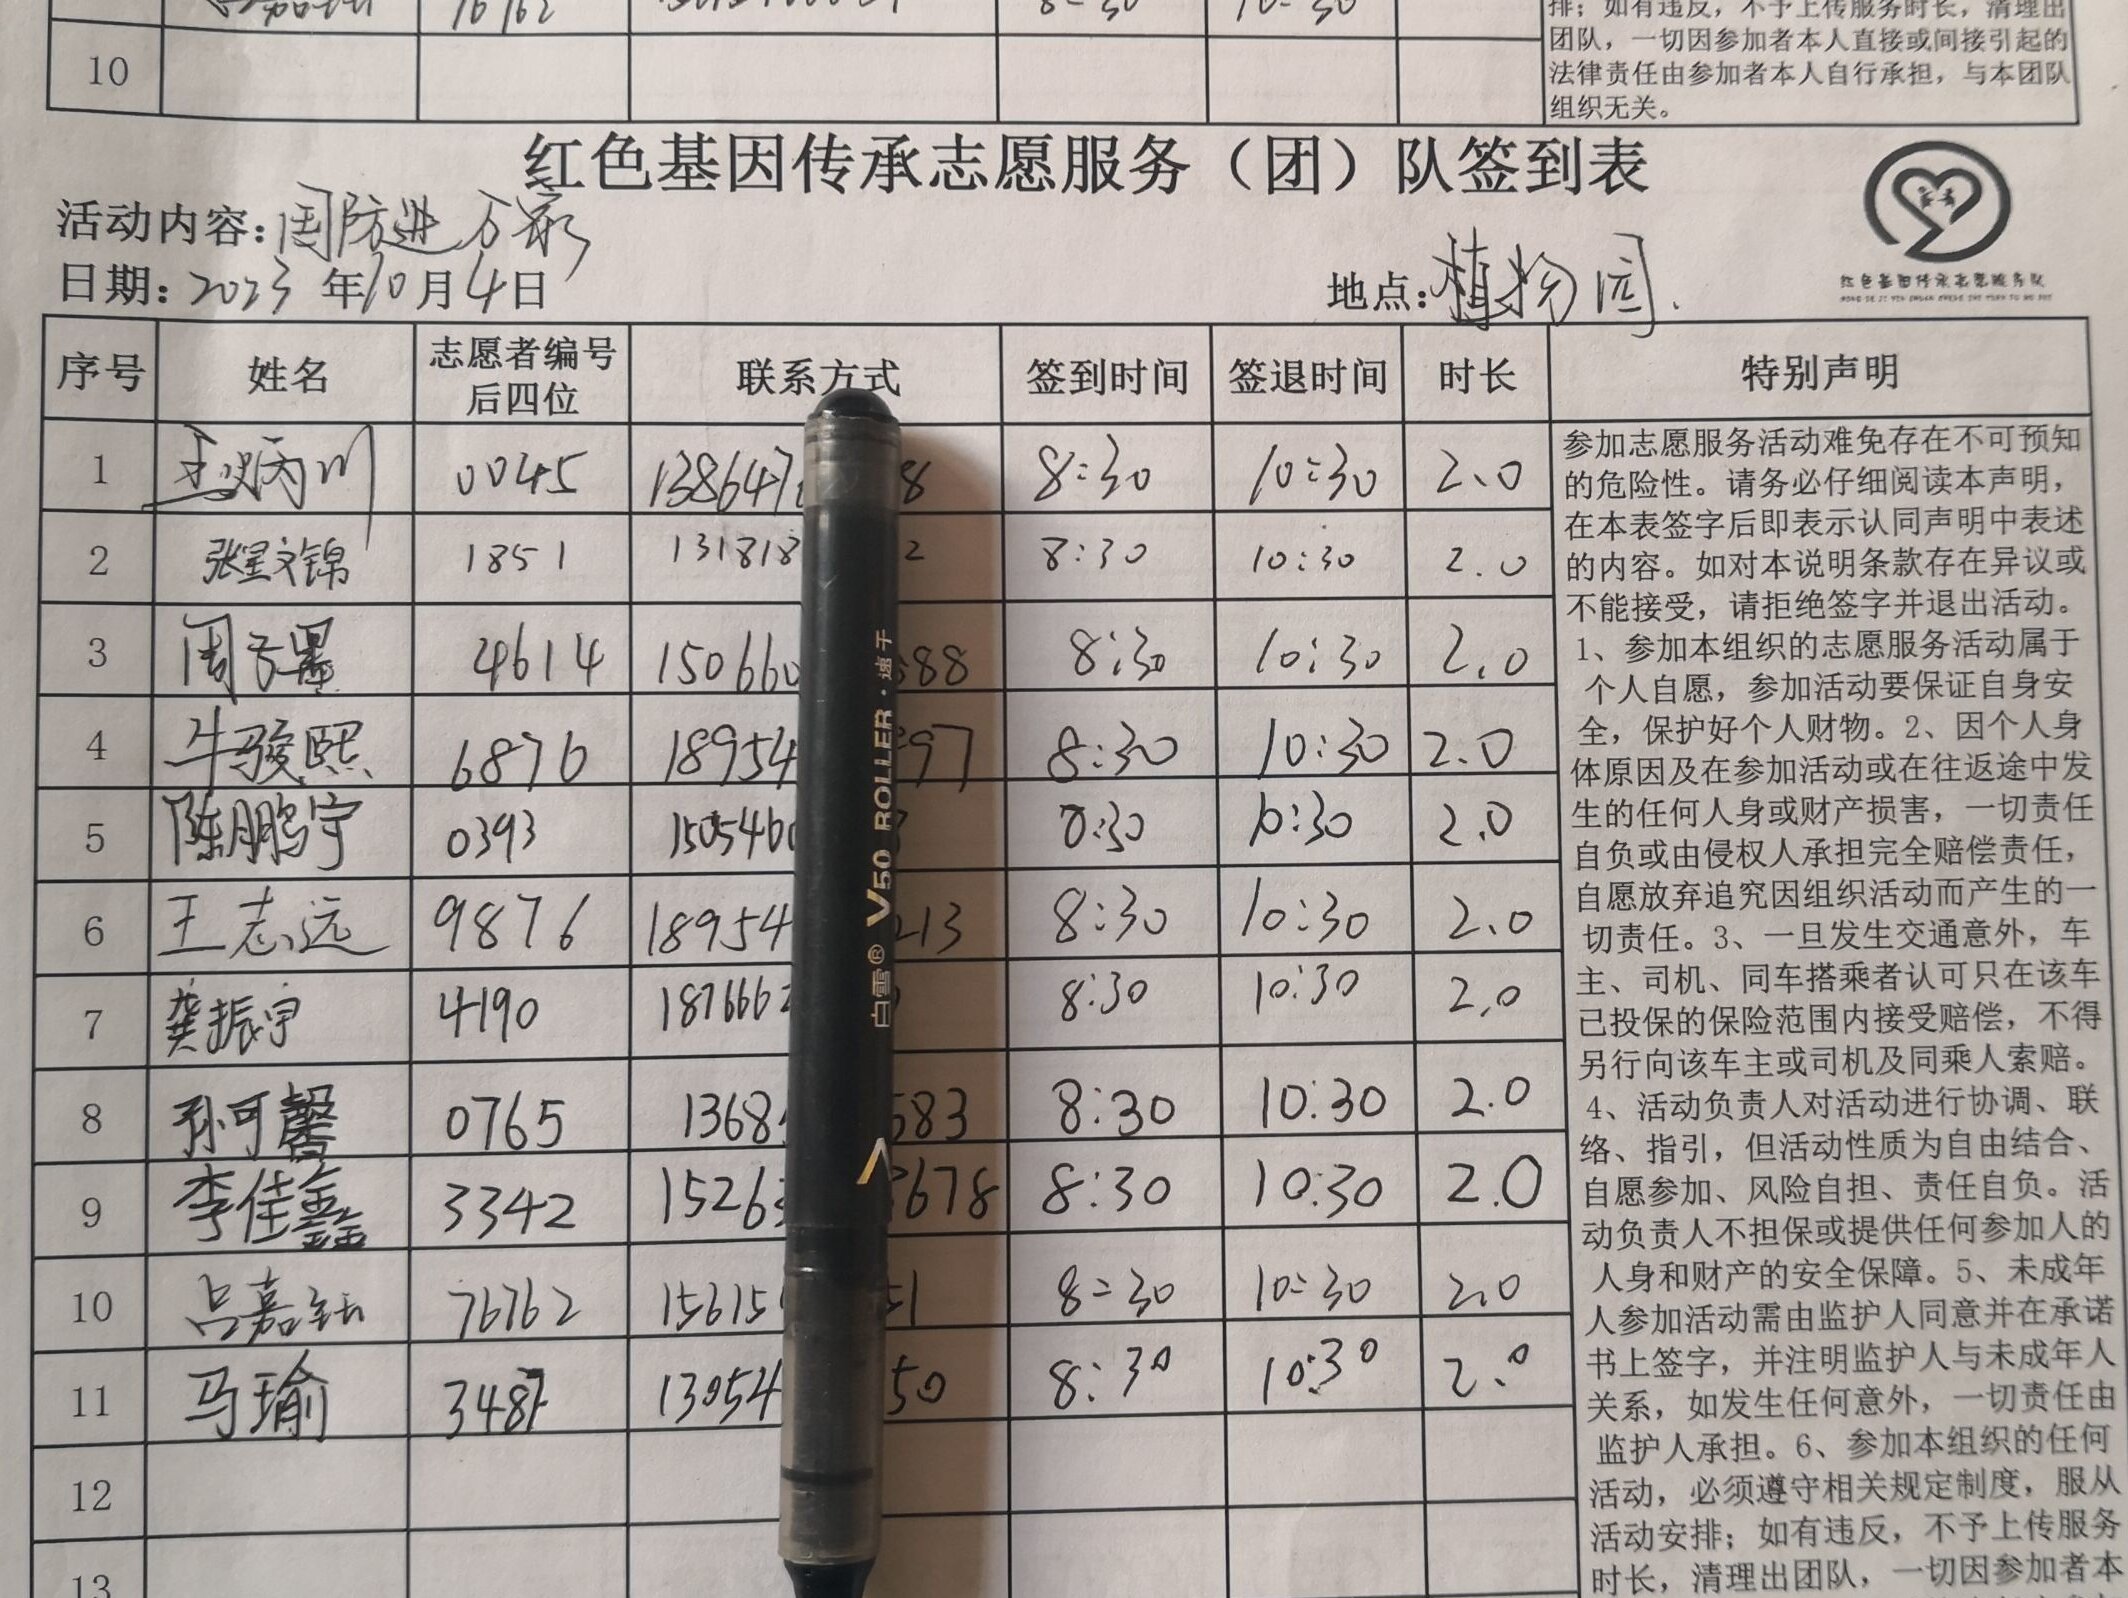 10
排；如有违反，不予上传服务时长，清理出
团队，一切因参加者本人直接或间接引起的
法律责任由参加者本人自行承担，与本团队
组织无关。
红色基因传承志愿服务（团）队签到表
活动内容：国防进万家
日期：2023年10月4日
地点：植物园.
红色基因传承志愿服务队
序号 姓名 志愿者编号后四位 联系方式 签到时间 签退时间 时长 特别声明
1 0045 138647 8 8:30 10:30 2.0
2 张星文锦 1851 131818 2 8:30 10:30 2.0
3 周子墨 4614 150660 888 8:30 10:30 2.0
4 牛骏熙 6876 18954 97 8:30 10:30 2.0
5 陈鹏宇 0393 1505460 8:30 10:30 2.0
6 王志远 9876 18954 213 8:30 10:30 2.0
7 龚振宇 4190 187666 8:30 10:30 2.0
8 孙可馨 0765 1368 583 8:30 10:30 2.0
9 李佳鑫 3342 15263 3678 8:30 10:30 2.0
10 吕嘉钰 76762 156154 51 8:30 10:30 2.0
11 马瑜 348 13054 50 8:30 10:30 2.0
12
13
参加志愿服务活动难免存在不可预知
的危险性。请务必仔细阅读本声明，
在本表签字后即表示认同声明中表述
的内容。如对本说明条款存在异议或
不能接受，请拒绝签字并退出活动。
1、参加本组织的志愿服务活动属于
个人自愿，参加活动要保证自身安
全，保护好个人财物。2、因个人身
体原因及在参加活动或在往返途中发
生的任何人身或财产损害，一切责任
自负或由侵权人承担完全赔偿责任，
自愿放弃追究因组织活动而产生的一
切责任。3、一旦发生交通意外，车
主、司机、同车搭乘者认可只在该车
已投保的保险范围内接受赔偿，不得
另行向该车主或司机及同乘人索赔。
4、活动负责人对活动进行协调、联
络、指引，但活动性质为自由结合、
自愿参加、风险自担、责任自负。活
动负责人不担保或提供任何参加人的
人身和财产的安全保障。5、未成年
人参加活动需由监护人同意并在承诺
书上签字，并注明监护人与未成年人
关系，如发生任何意外，一切责任由
监护人承担。6、参加本组织的任何
活动，必须遵守相关规定制度，服从
活动安排；如有违反，不予上传服务
时长，清理出团队，一切因参加者本
白雪® V50 ROLLER·速干